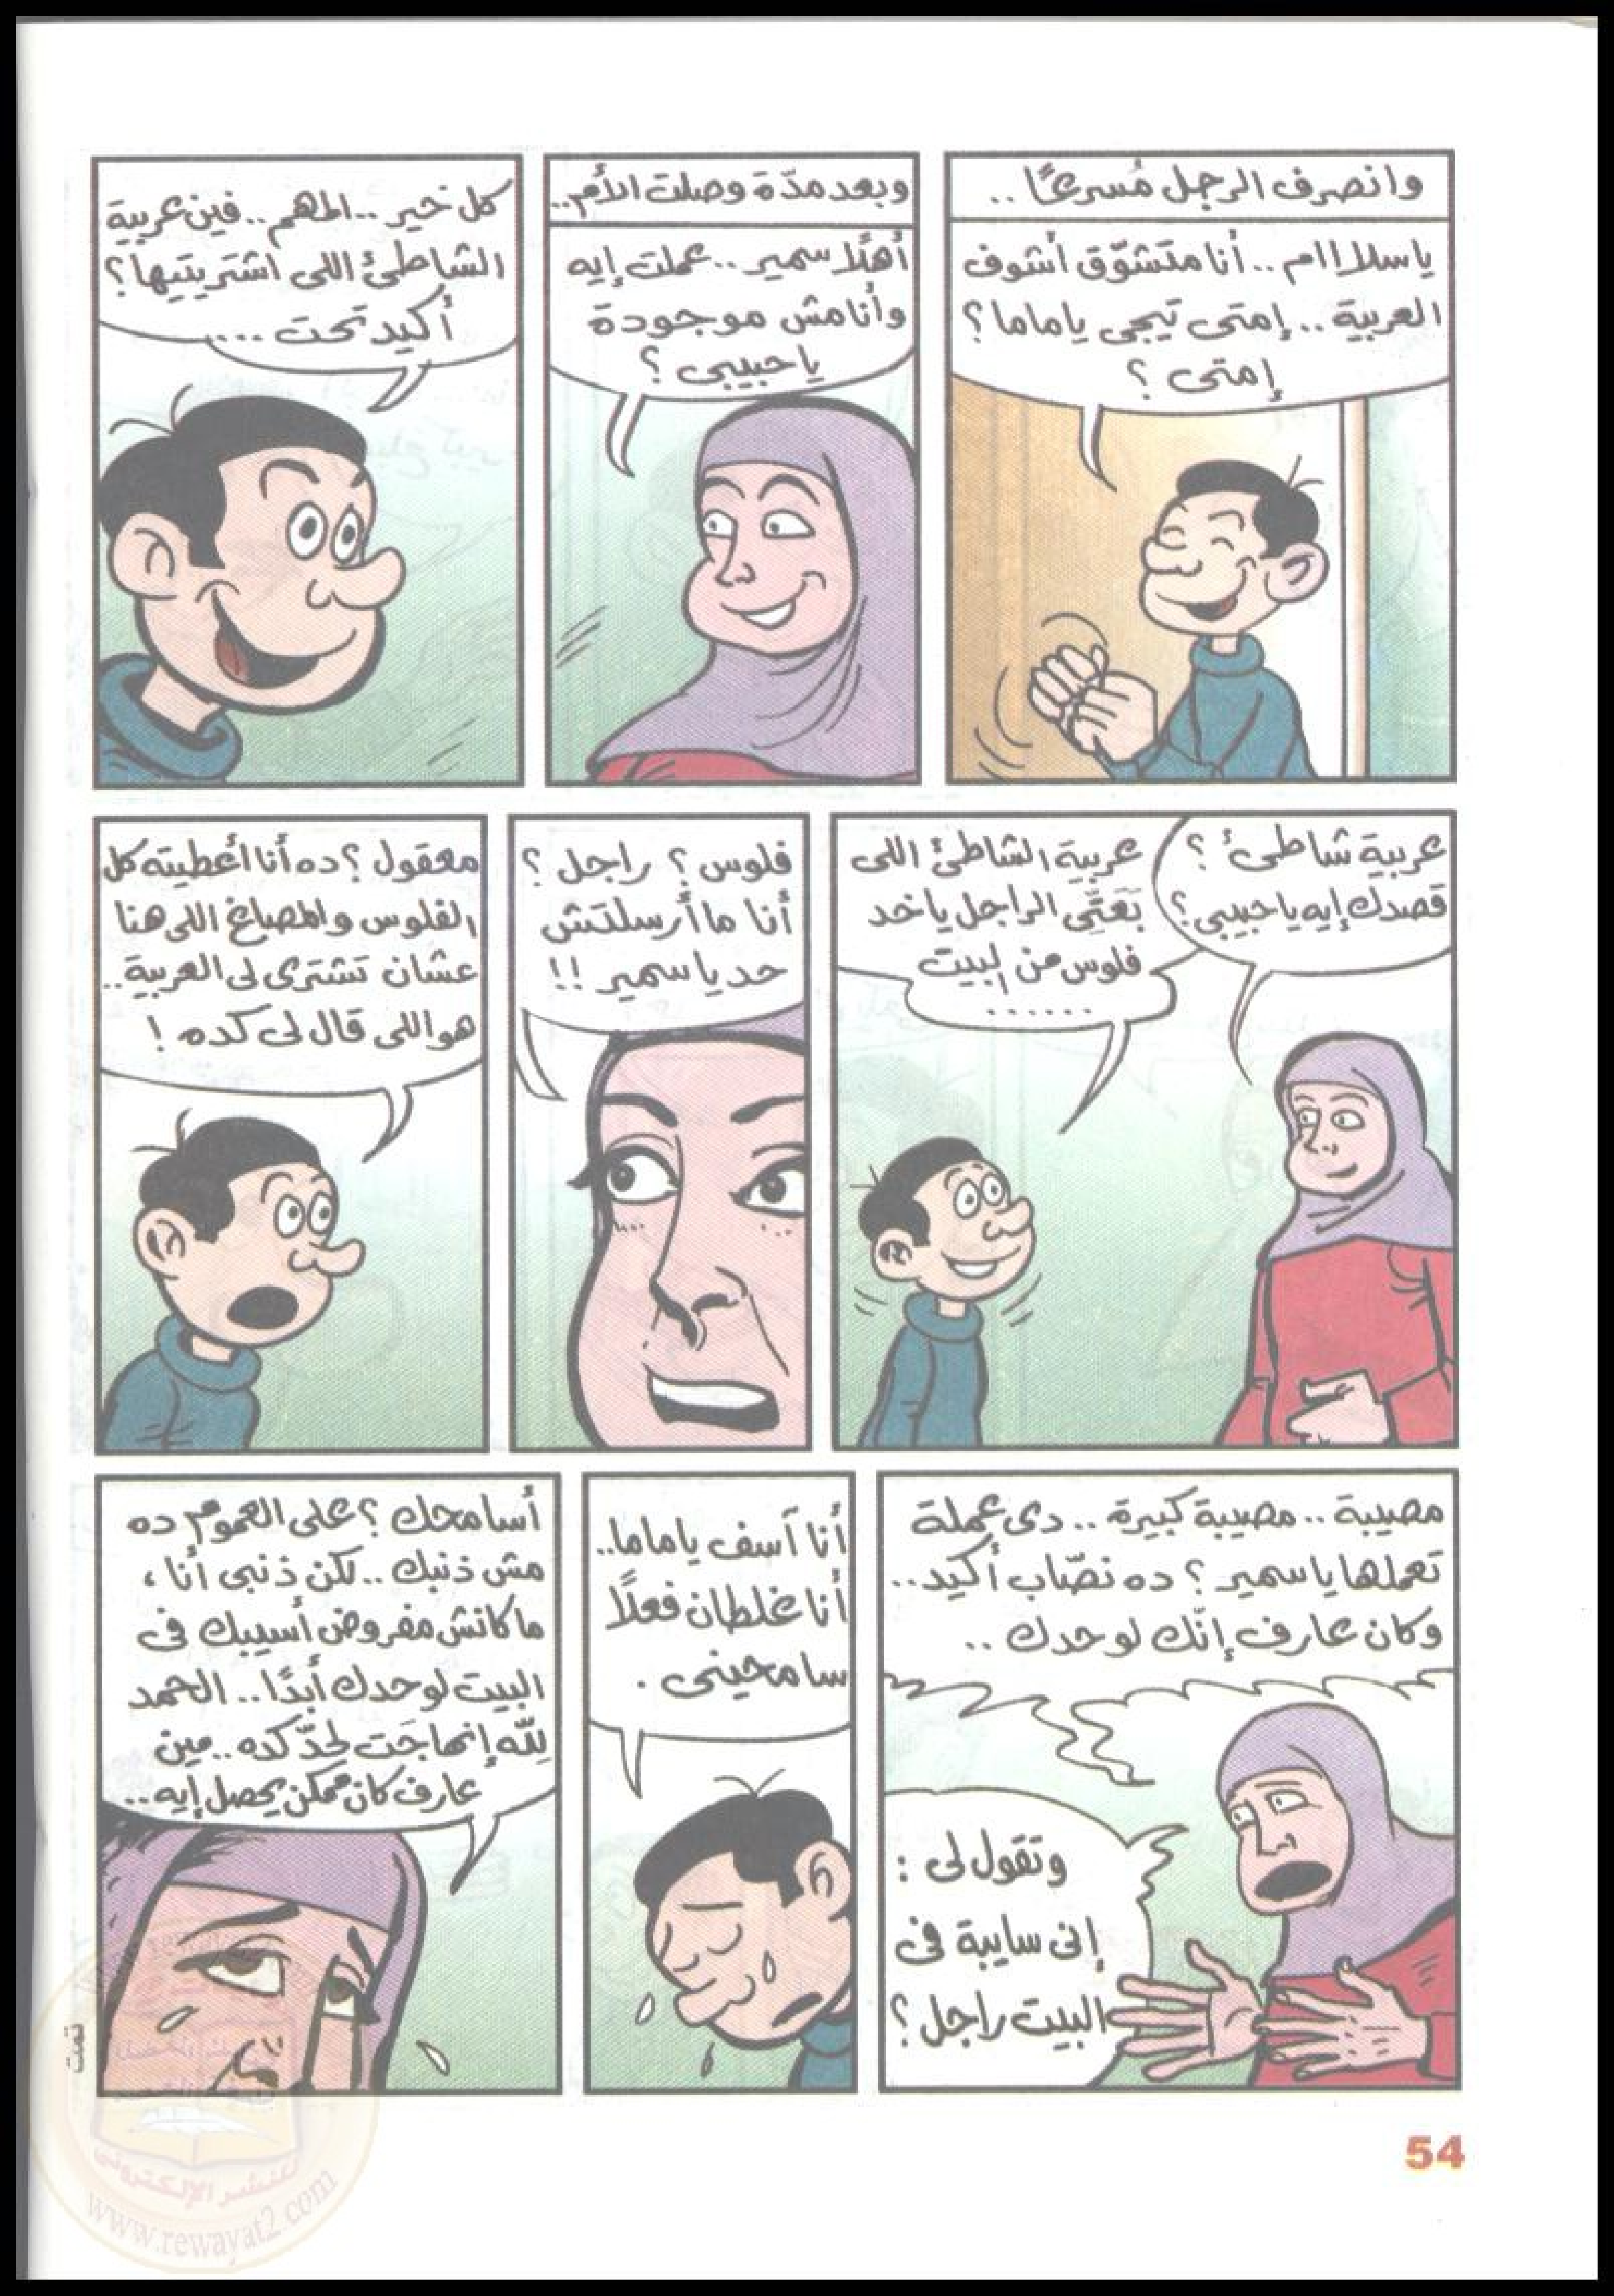 وانصرف الرجل مُسرعًا ..
ياسلااام .. أنا متشوّق أشوف
العربية .. إمتى تيجى ياماما ؟
إمتى ؟
وبعد مدّة وصلت الأم ..
أهلًا سمير .. عملت إيه
وأنا مش موجودة
ياحبيبى ؟
كل خير .. المهم .. فين عربية
الشاطئ اللى اشتريتيها ؟
أكيد تحت ....
عربية شاطئ ؟
قصدك إيه ياحبيبى ؟
عربية الشاطئ اللى
بَعَتِّى الراجل ياخد
فلوس من البيت
......
فلوس ؟ راجل ؟
أنا ما أرسلتش
حد ياسمير !!
معقول ؟ ده أنا أعطيته كل
الفلوس والمصاغ اللى هنا
عشان تشترى لى العربية ..
هو اللى قال لى كده !
مصيبة .. مصيبة كبيرة .. دى عملة
تعملها ياسمير ؟ ده نصّاب أكيد ..
وكان عارف إنّك لوحدك ..
وتقول لى :
إنى سايبة فى
البيت راجل ؟
أنا آسف ياماما ..
أنا غلطان فعلًا
سامحينى .
أسامحك ؟ على العموم ده
مش ذنبك .. لكن ذنبى أنا ،
ماكانش مفروض أسيبك فى
البيت لوحدك أبدًا .. الحمد
للّه إنها جَت لحدّ كده .. مين
عارف كان ممكن يحصل إيه ..
تمت
للنشر الإلكترونى
www.rewayat2.com
54